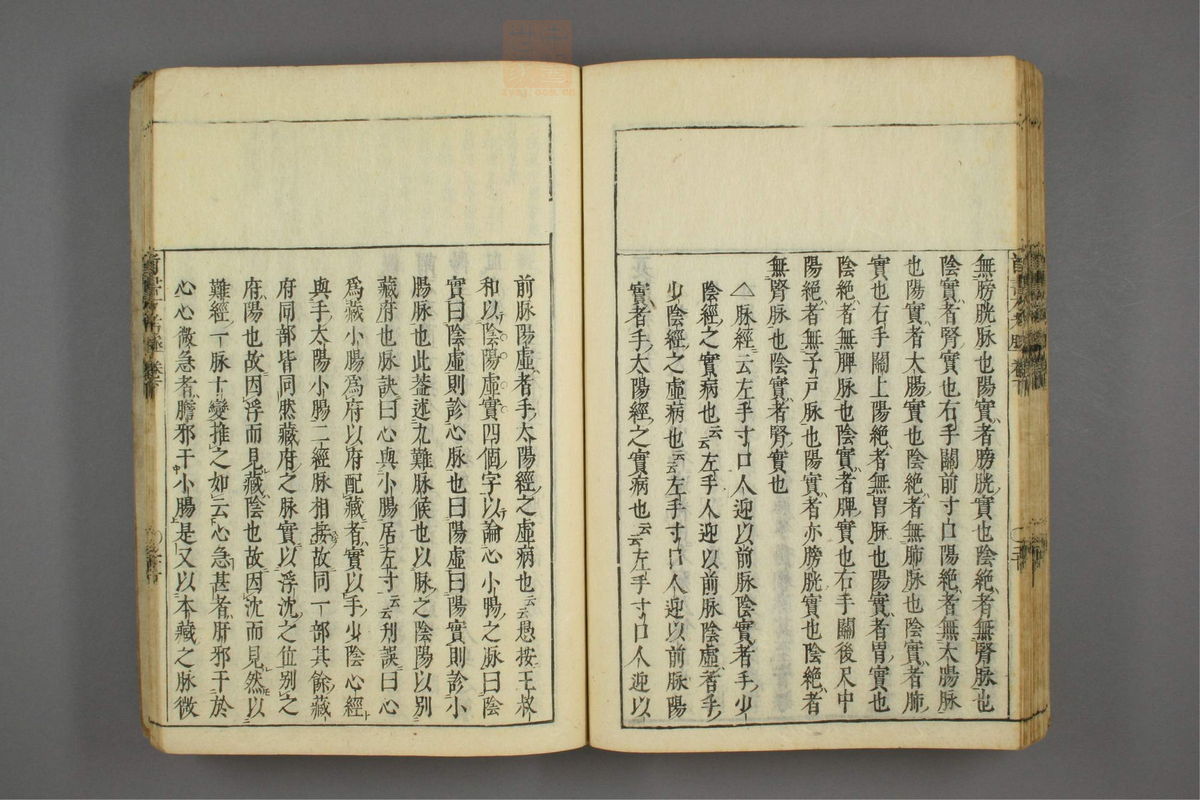 無膀胱脉也陽實者膀胱實也陰絶者無腎脉也
陰實者腎實也右手關前寸口陽絶者無大腸脉
也陽實者大腸實也陰絶者無肺脉也陰實者肺
實也右手關上陽絶者無胃脉也陽實者胃實也
陰絶者無脾脉也陰實者脾實也右手關後尺中
陽絶者無子戸脉也陽實者亦膀胱實也陰絶者
無腎脉也陰實者腎實也
△脉經云左手寸口人迎以前脉陰實者手少
陰經之實病也云云左手人迎以前脉陰虛者手
少陰經之虛病也云云左手寸口人迎以前脉陽
實者手太陽經之實病也云云左手寸口人迎以
前脉陽虛者手太陽經之虛病也云云愚按王叔
和以陰陽虛實四個字以論心小腸之脉曰陰
實曰陰虛則診心脉也曰陽虛曰陽實則診小
腸脉也此蓋述九難脉候也以脉之陰陽以別
藏府也脉訣曰心與小腸居左寸云云刋誤曰心
爲藏小腸爲府以府配藏者實以手少陰心經
與手太陽小腸二經脉相接故同一部其餘藏
府同部皆同然藏府之脉實以浮沈之位別之
府陽也故因浮而見藏陰也故因沈而見然以
難經一脉十變推之如云心急甚者肝邪干於
心心微急者膽邪干小腸是又以本藏之脉微